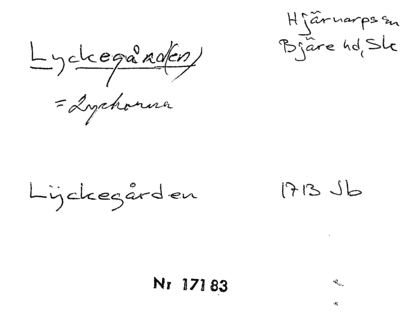 Hjärnarps sn
Bjäre hd, Sk
Lyckegård(en)
= Lyckorna
Lÿckegården 1713 Jb
Nr 17183